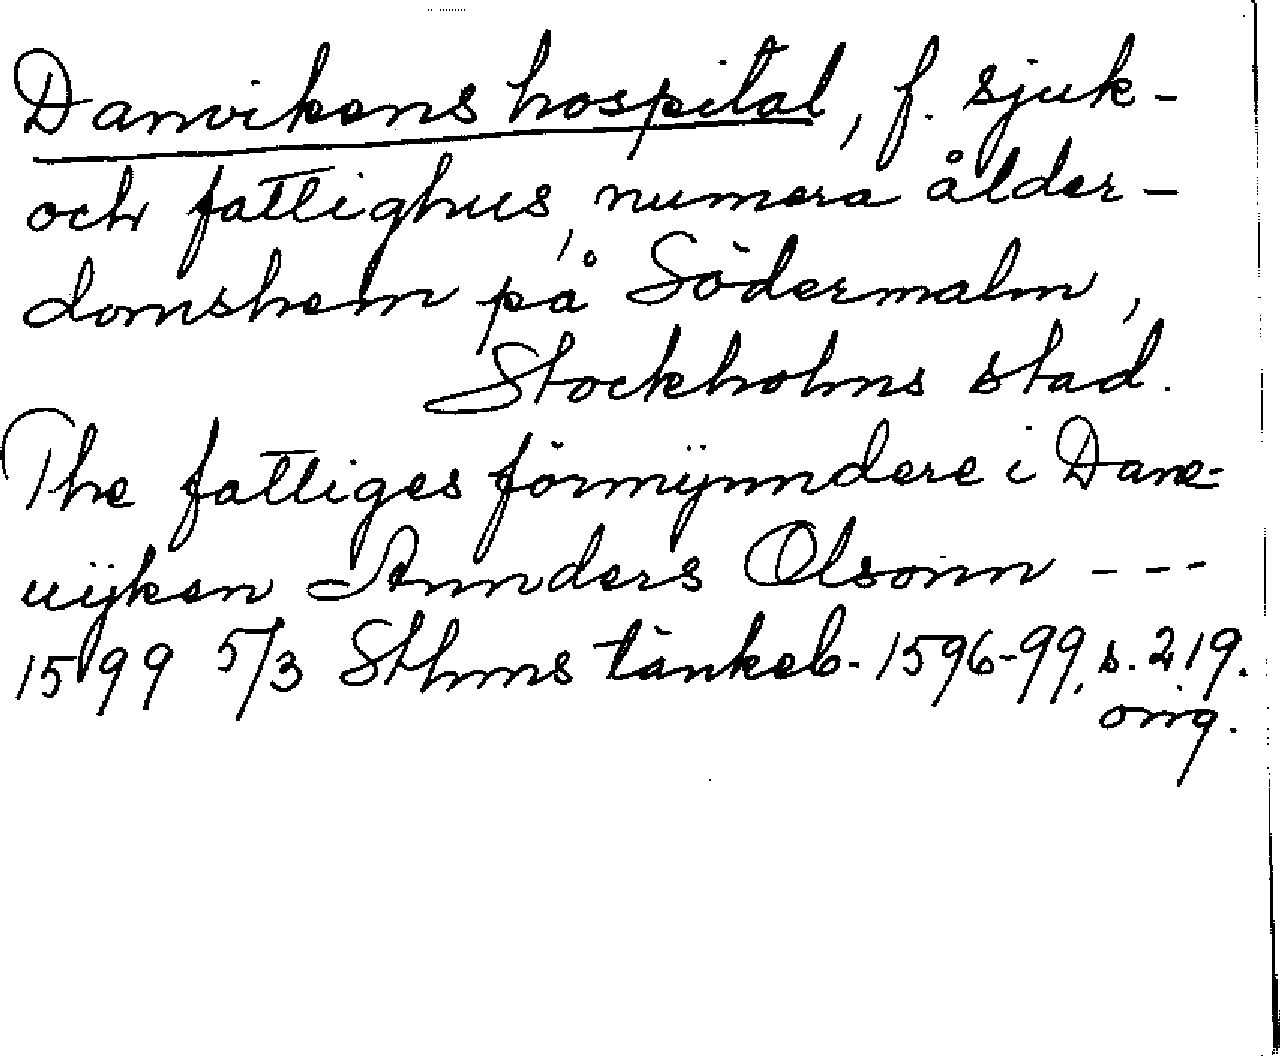 Danvikens hospital, f. sjuk-
och fattighus, numera ålder-
domshem på Södermalm,
Stockholms stad.
The fattiges förmÿnndere i Dane-
uijken Annders Olsonn ---
1599 5/3 Sthms tänkeb. 1596-99, s. 219.
orig.